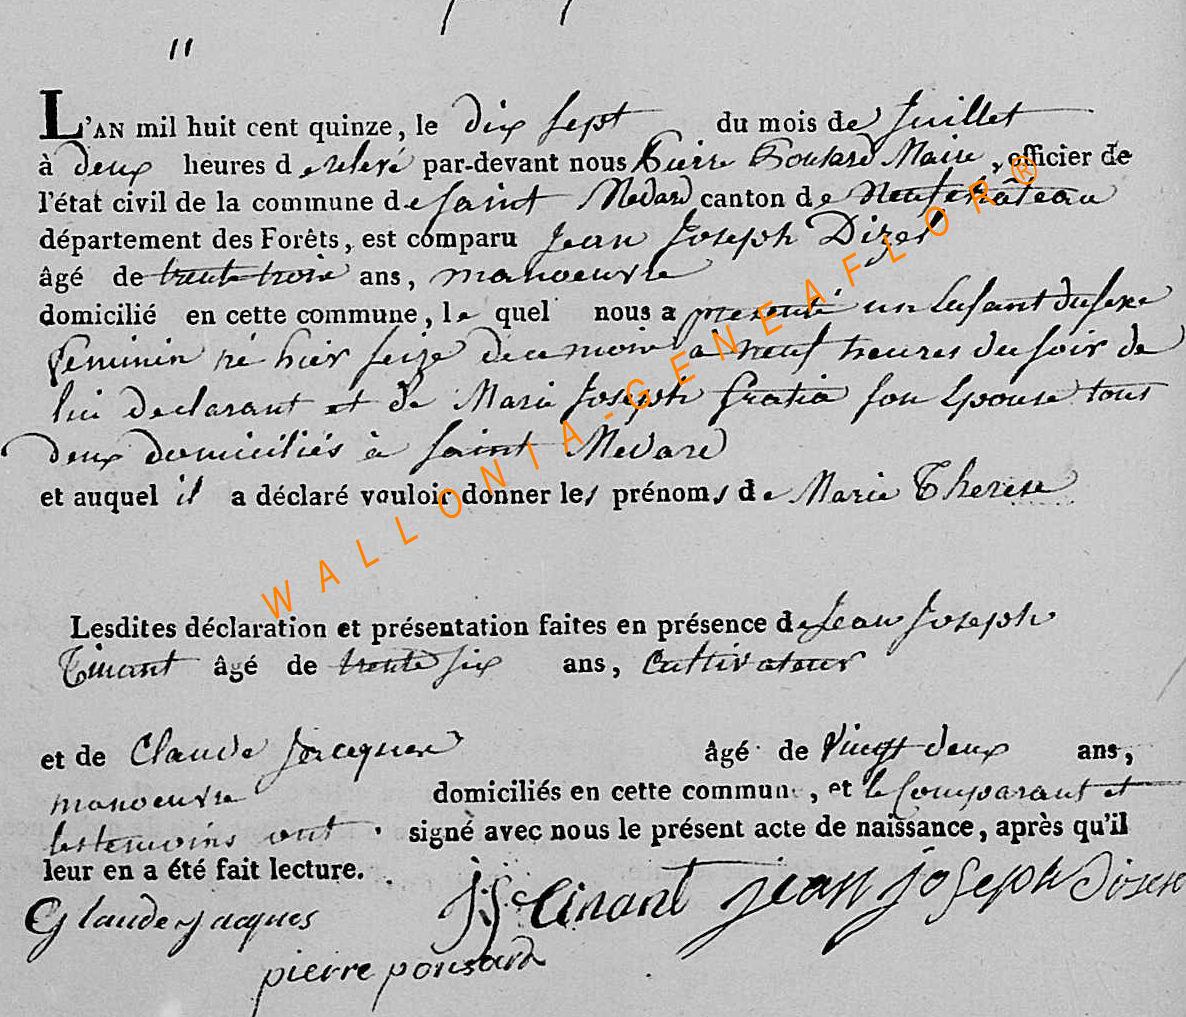 11
L'AN mil huit cent quinze, le dix sept du mois de Juillet
à deux heures de relevé par-devant nous Pierre Ponsard Maire, officier de
l'état civil de la commune de Saint Medard canton de Neufchateau
département des Forêts, est comparu Jean Joseph Dizer
âgé de trente trois ans, manoeuvre
domicilié en cette commune, le quel nous a presenté un Enfant du sexe
feminin né hier seize de ce mois à neuf heures du soir de
lui declarant et de Marie Joseph Gratia son Epouse tous
deux domiciliés à Saint Medard
et auquel il a déclaré vouloir donner les prénoms de Marie Therese
Lesdites déclaration et présentation faites en présence de Jean Joseph
Tinant âgé de trente six ans, cultivateur
et de Claude Jacques âgé de vingt deux ans,
manoeuvre domiciliés en cette commune, et le comparant et
les temoins ont signé avec nous le présent acte de naissance, après qu'il
leur en a été fait lecture.
Glaude jacques J: Js: Tinant jean joseph
pierre ponsard
WALLONIA-GENEAFLOR®